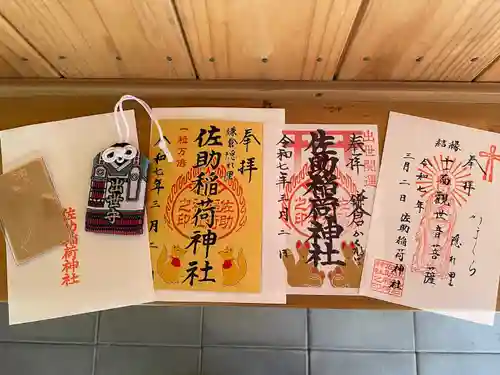 佐助稲荷神社
出世守
奉拝
鎌倉隠れ里
一粒万倍
佐助稲荷神社
佐助
之印
令和七年三月二日
奉拝
出世開運
鎌倉かくれ里
佐助稲荷神社
令和七年三月二日
奉拝
結縁
十一面観世音菩薩
隠れ里
かまくら
令和七年
三月二日
佐助稲荷神社